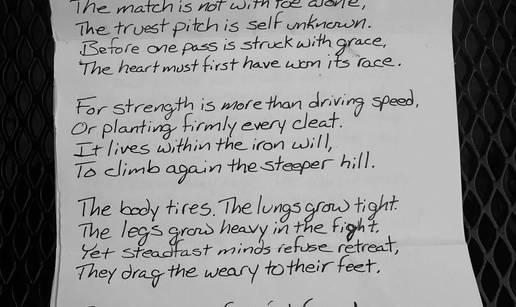 The match is not with foe alone,
The truest pitch is self unknown.
Before one pass is struck with grace,
The heart must first have won its race.
For strength is more than driving speed,
Or planting firmly every cleat.
It lives within the iron will,
To climb again the steeper hill.
The body tires. The lungs grow tight.
The legs grow heavy in the fight.
Yet steadfast minds refuse retreat,
They drag the weary to their feet.